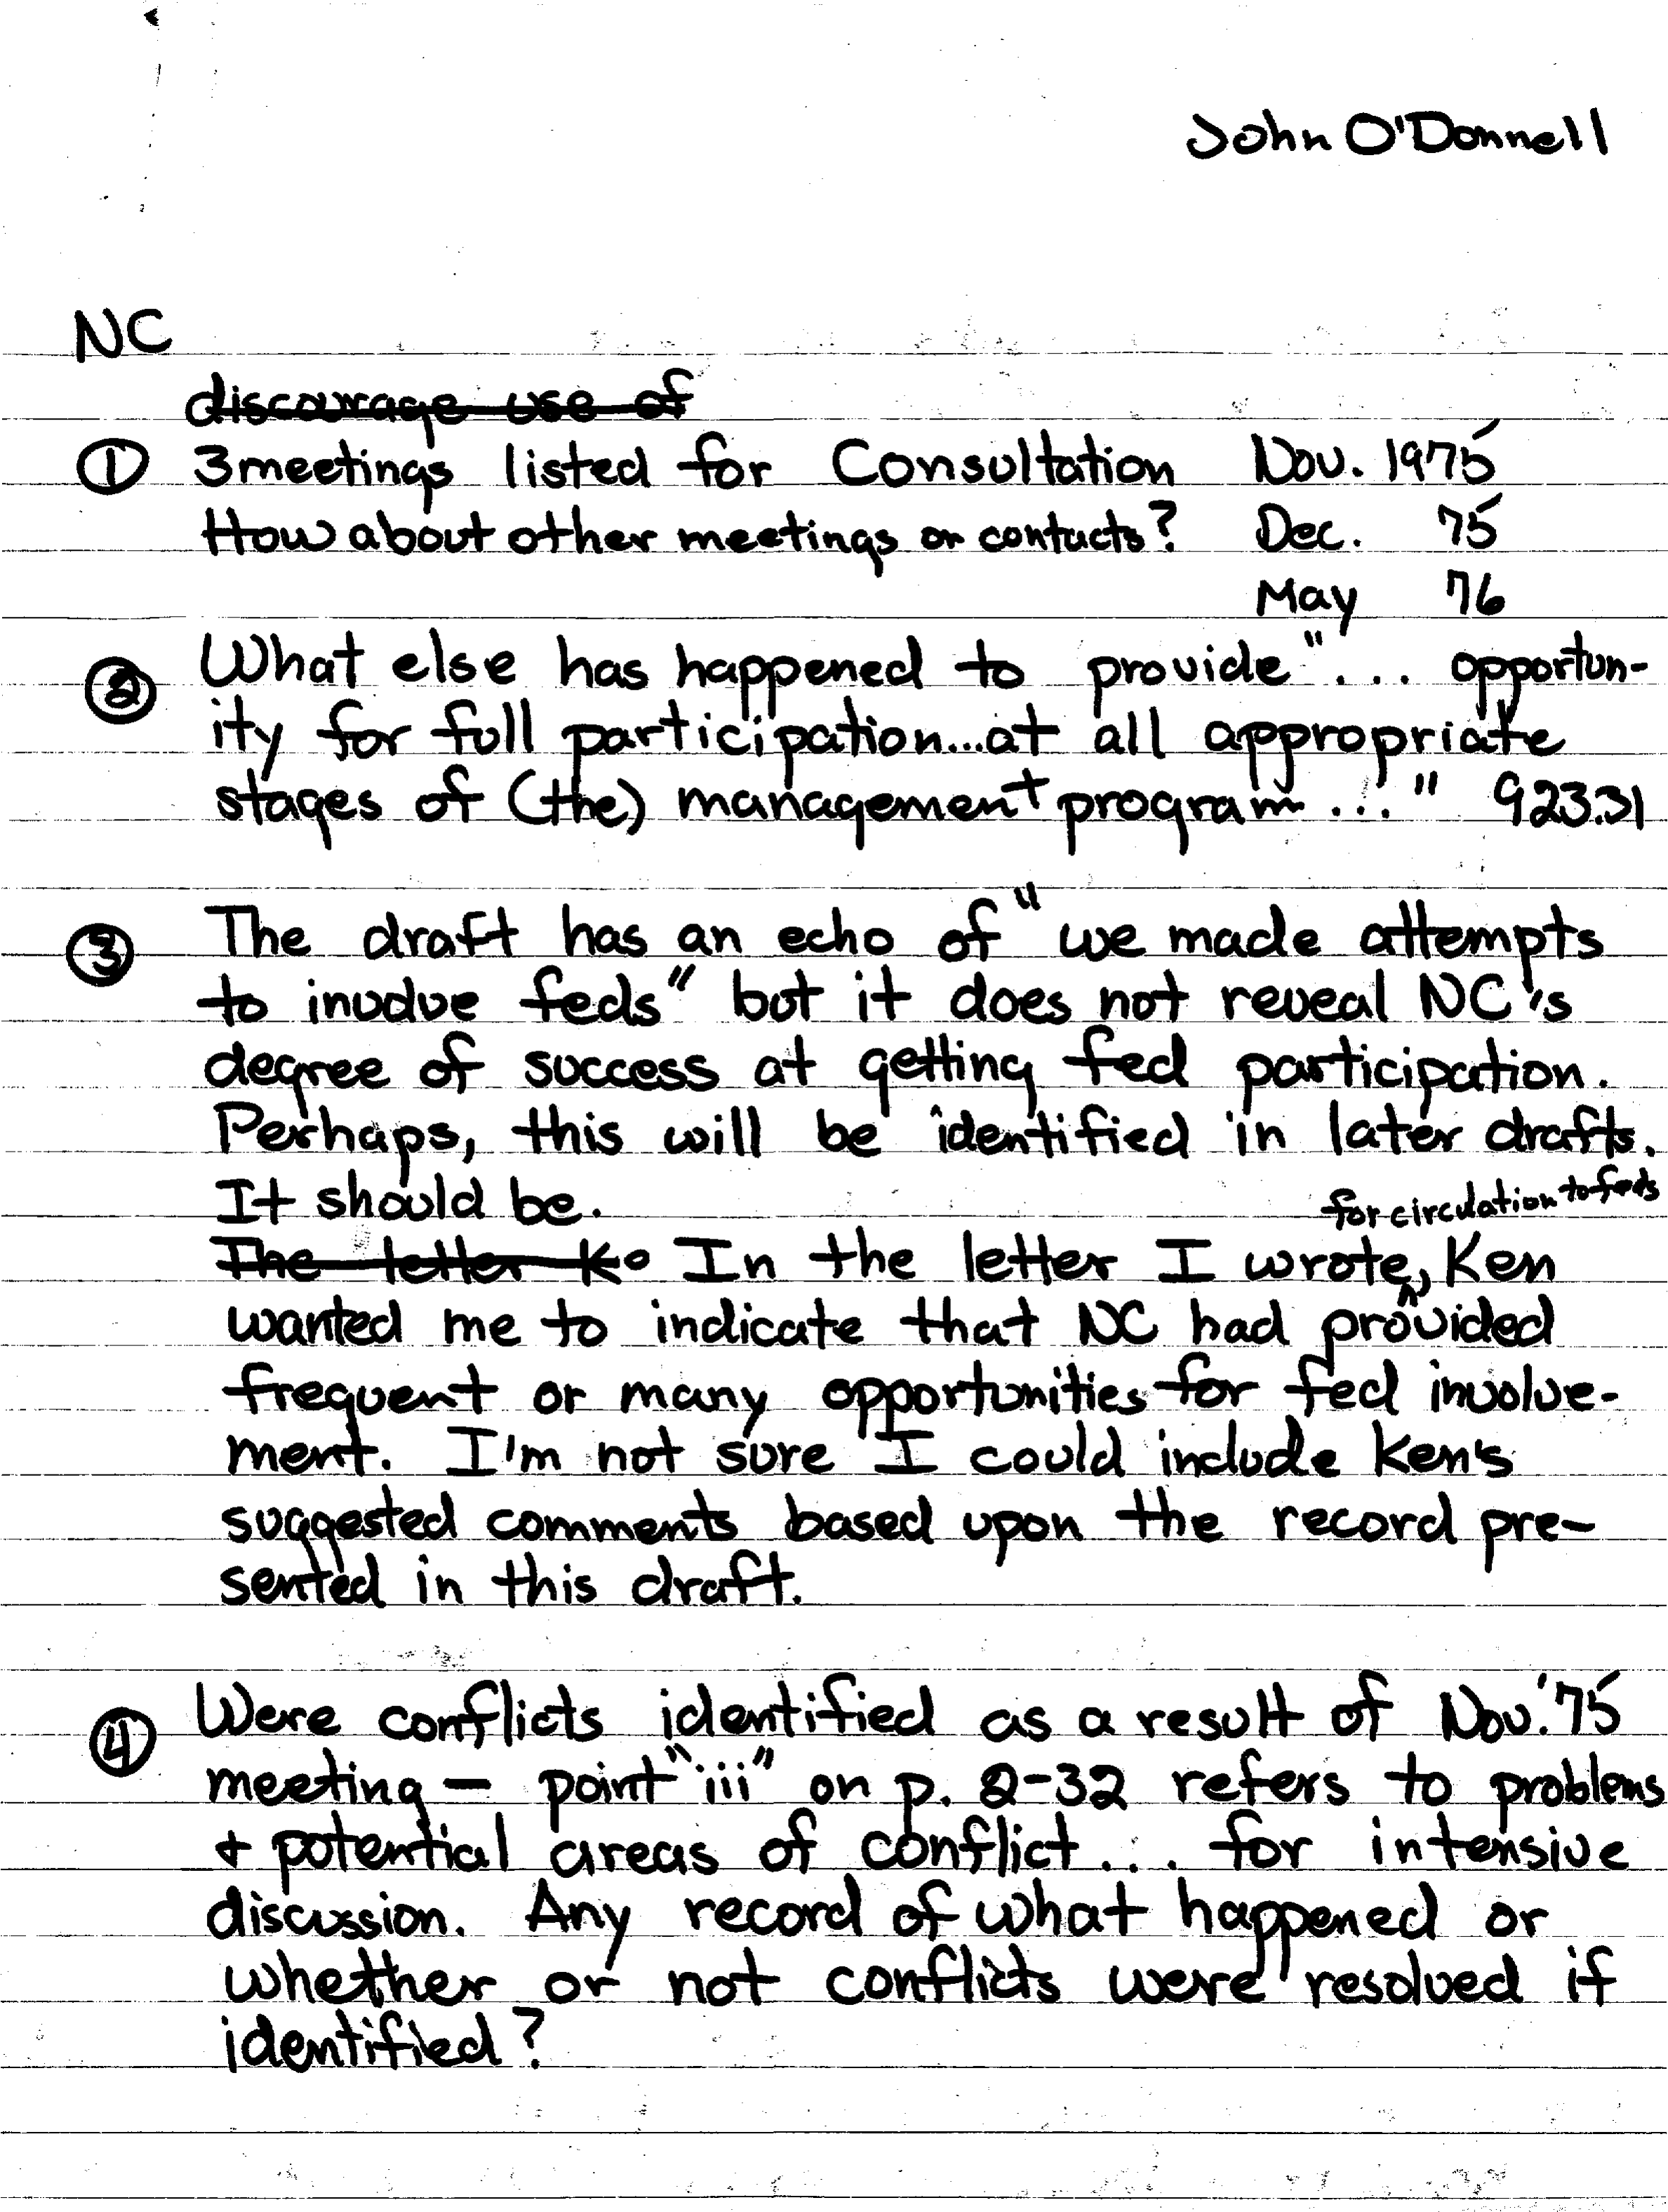 John O'Donnell
NC
discourage use of
① 3 meetings listed for Consultation Nov. 1975
How about other meetings or contacts? Dec. 75
May 76
② What else has happened to provide "... opportun-
ity for full participation...at all appropriate
stages of (the) management program ..." 923.31
③ The draft has an echo of "we made attempts
to inudve feds" but it does not reveal NC's
degree of success at getting fed participation.
Perhaps, this will be identified in later drafts.
It should be.
for circulation to feds
The letter Ke In the letter I wrote, Ken
wanted me to indicate that NC had provided
frequent or many opportunities for fed involve-
ment. I'm not sure I could include Ken's
suggested comments based upon the record pre-
sented in this draft.
④ Were conflicts identified as a result of Nov. '75
meeting – point "iii" on p. 2-32 refers to problems
+ potential areas of conflict... for intensive
discussion. Any record of what happened or
whether or not conflicts were resolved if
identified?